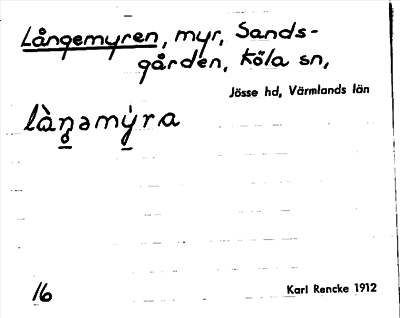 Långemyren, myr, Sands-
gården, Köla sn,
Jösse hd, Värmlands län
làŋəmỳra
16
Karl Rencke 1912